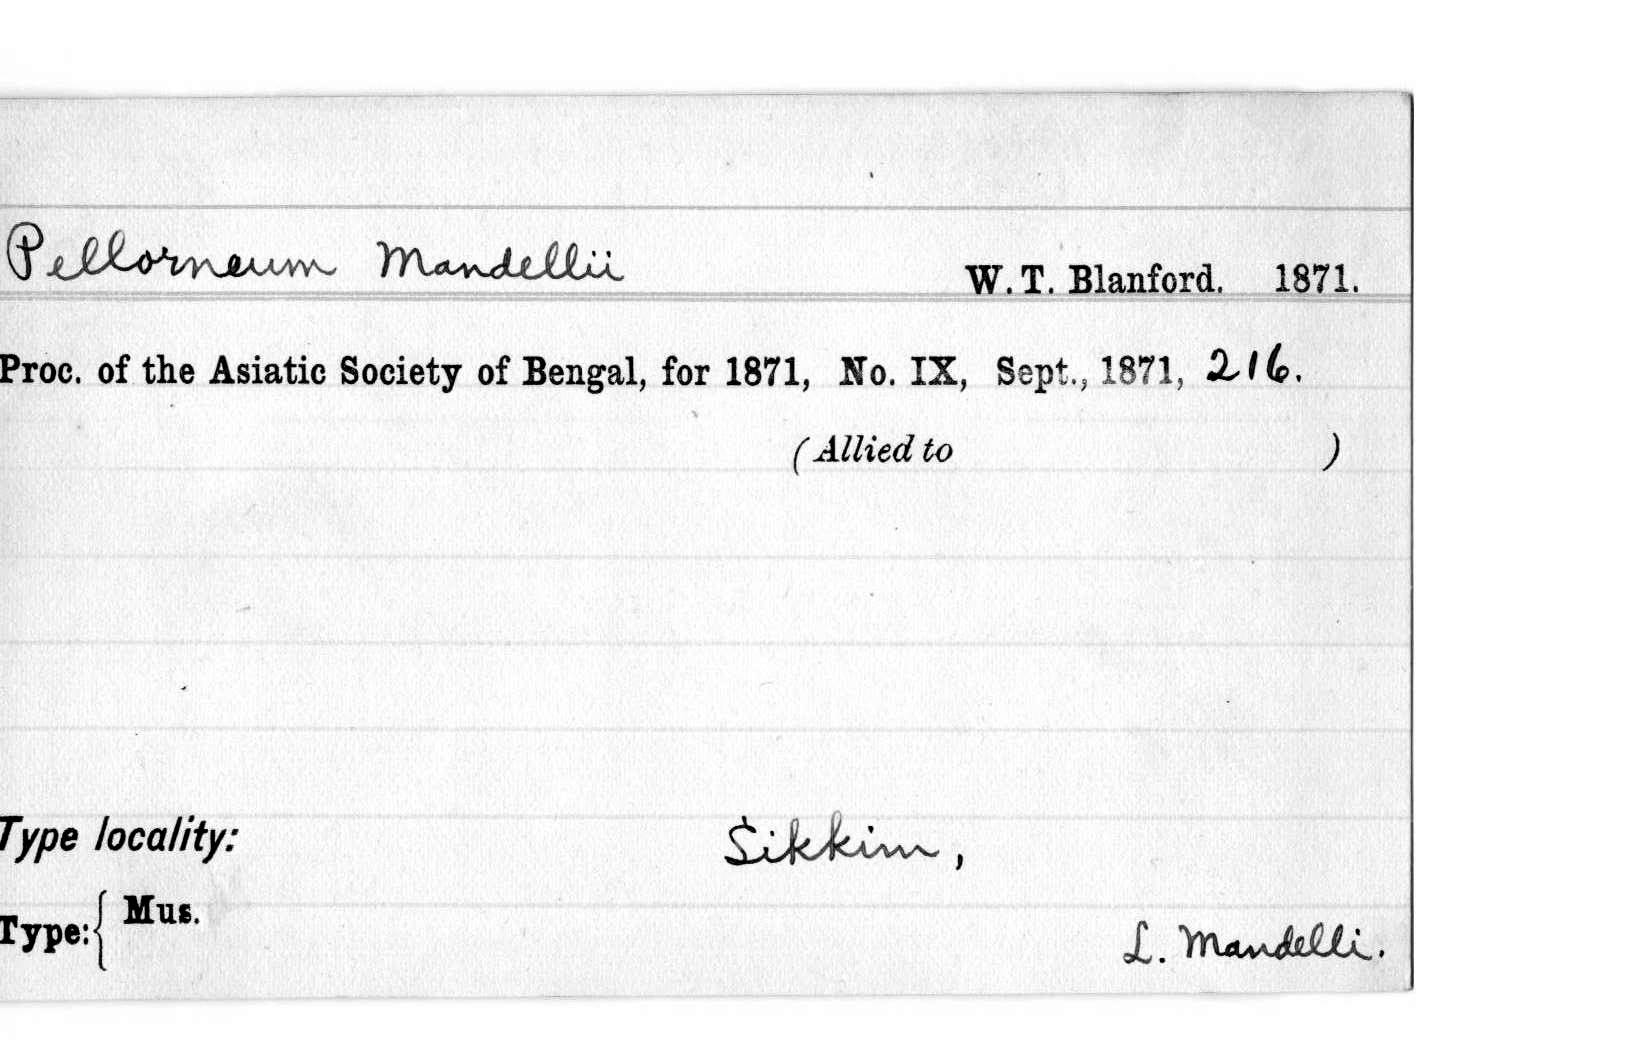 Pellorneum Mandellii W. T. Blanford. 1871.
Proc. of the Asiatic Society of Bengal, for 1871, No. IX, Sept., 1871, 216.
(Allied to )
Type locality: Sikkim,
Type: { Mus.
L. Mandelli.